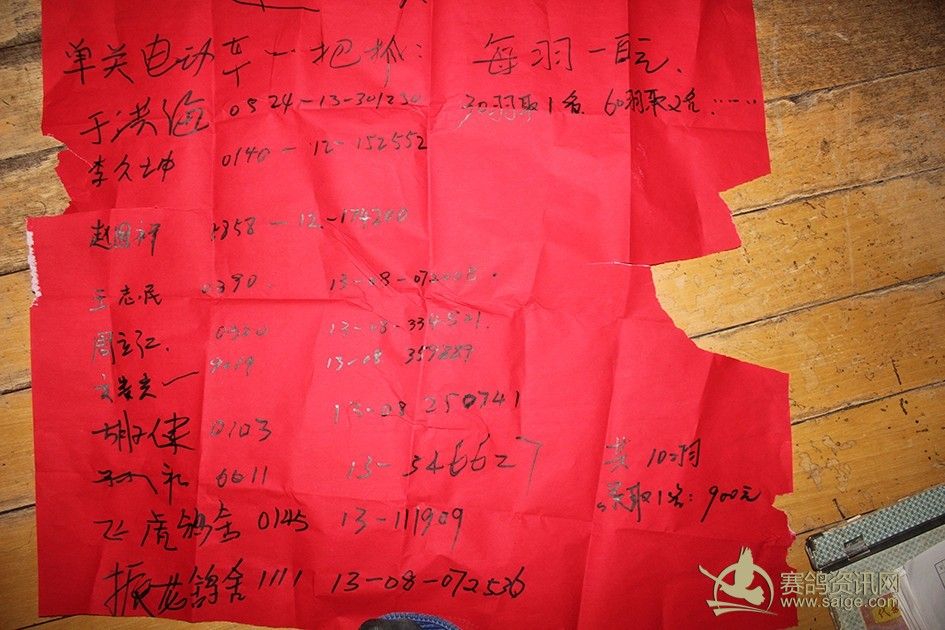 单关电动车一把抓: 每羽一百元.
于洪海 0524-13-301230 30羽取1名 60羽取2名······
李久坤 0140-12-152552
赵国祥 5358-12-174200
王志民 0390. 13-08-072008.
周立仁. 0300 13-08-334521.
9009 13-08 359889
胡健 0103 13-08 250741
礼 6611 13-346627 共10羽
录取1名: 900元
飞虎鸽舍 0145 13-111909
振龙鸽舍 1111 13-08-072536
赛鸽资讯网
www.saige.com